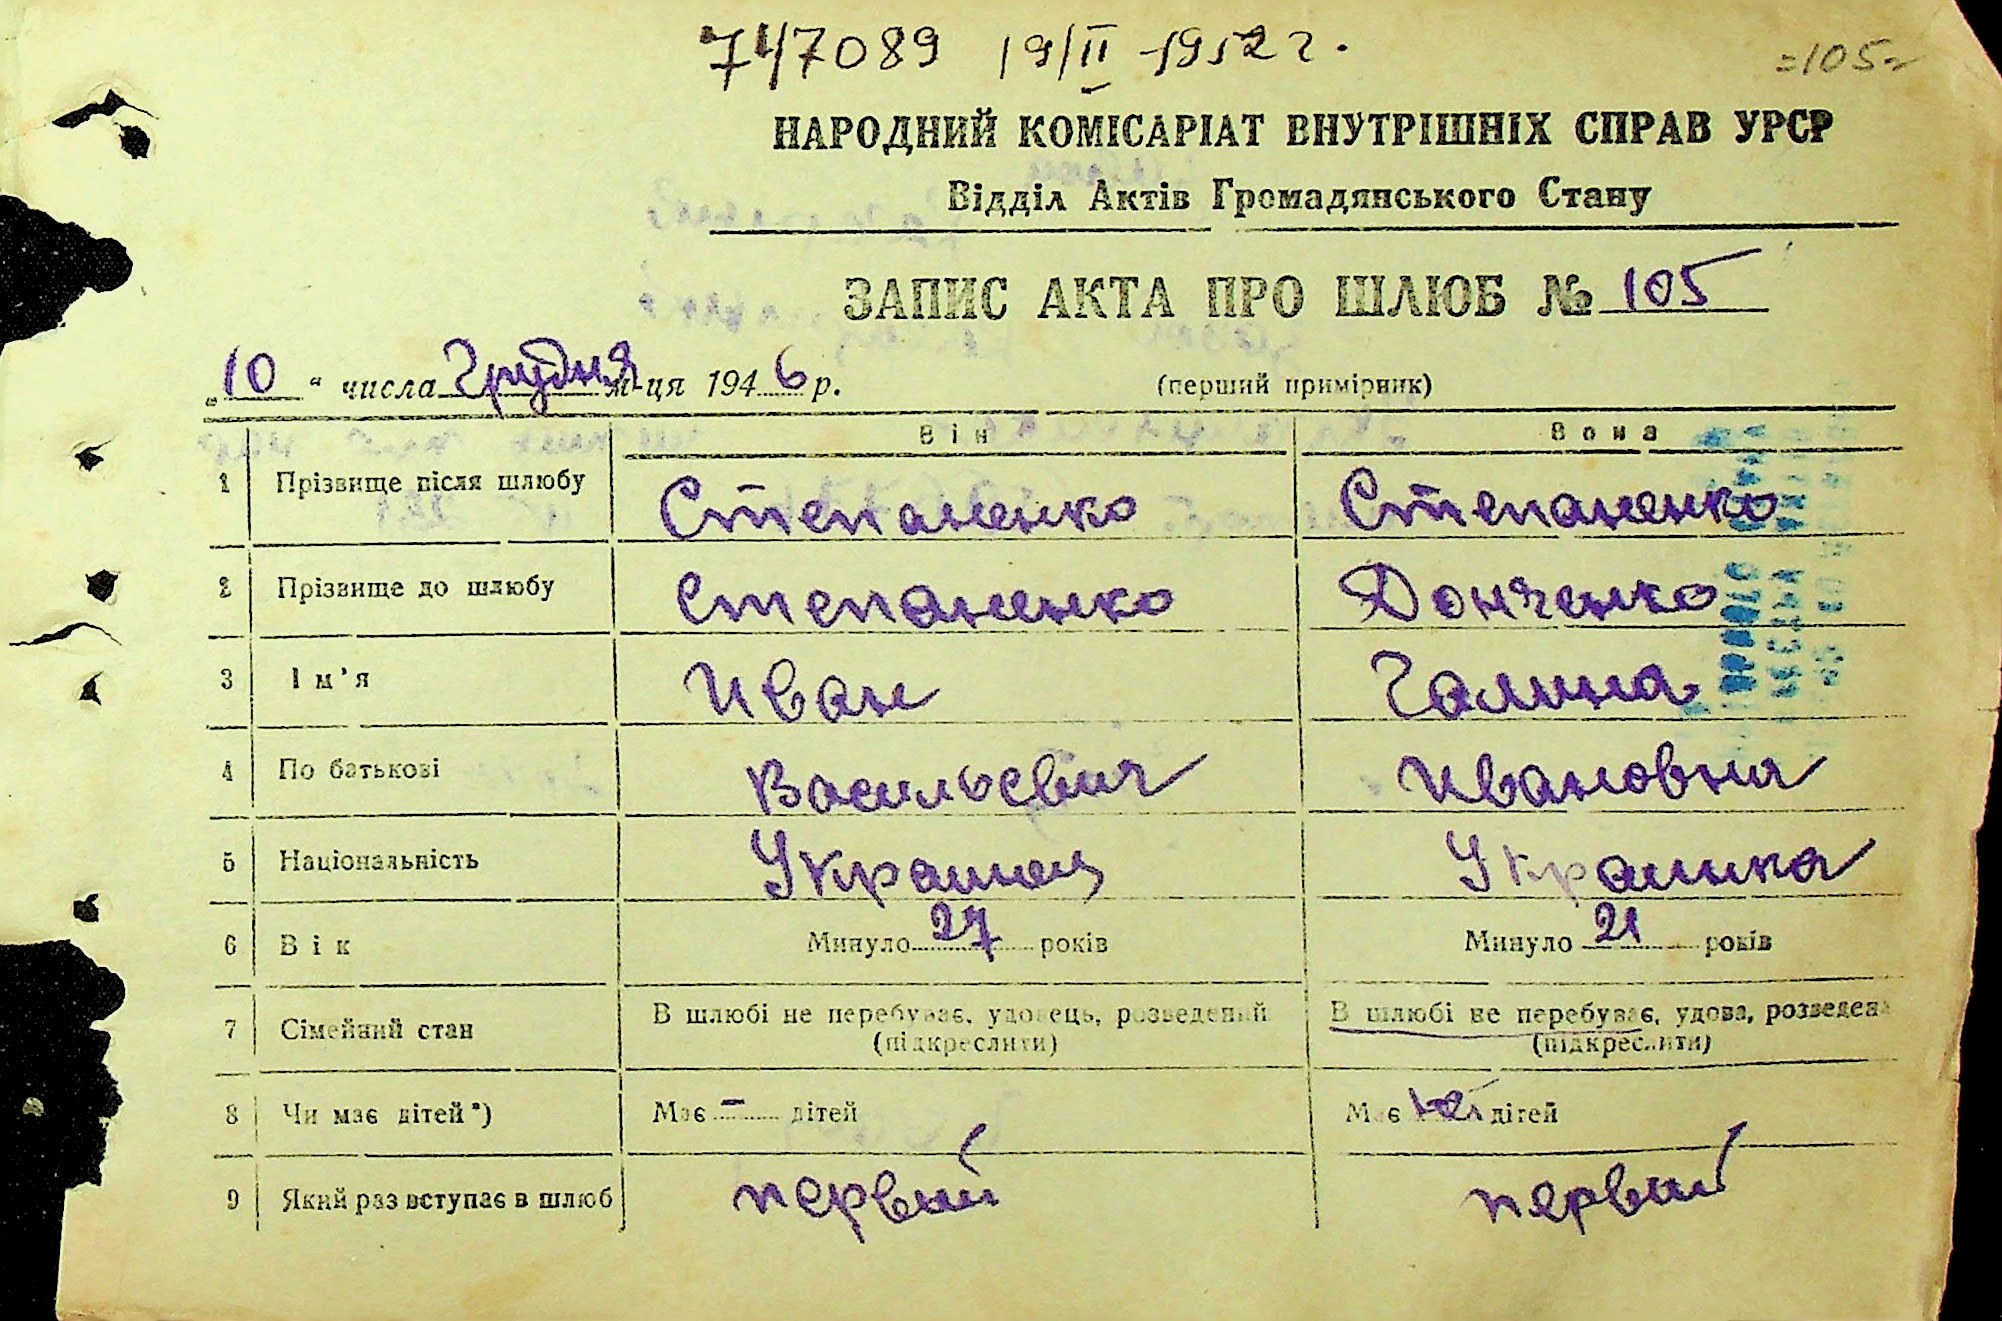 747089 19/II 1952 г.
=105=
НАРОДНИЙ КОМІСАРІАТ ВНУТРІШНІХ СПРАВ УРСР
Відділ Актів Громадянського Стану
ЗАПИС АКТА ПРО ШЛЮБ № 105
„10“ числа Грудня м-ця 1946 р. (перший примірник)
Він Вона
1 Прізвище після шлюбу Степаненко Степаненко
2 Прізвище до шлюбу Степаненко Донченко
3 Ім’я Иван Галина
4 По батькові Васильевич Ивановна
5 Національність Украинец Украинка
6 Вік Минуло 27 років Минуло 21 років
7 Сімейний стан В шлюбі не перебуває, удовець, розведений (підкреслити) В шлюбі не перебуває, удова, розведена (підкреслити)
8 Чи має дітей*) Має – дітей Має дітей
9 Який раз вступає в шлюб первый первый